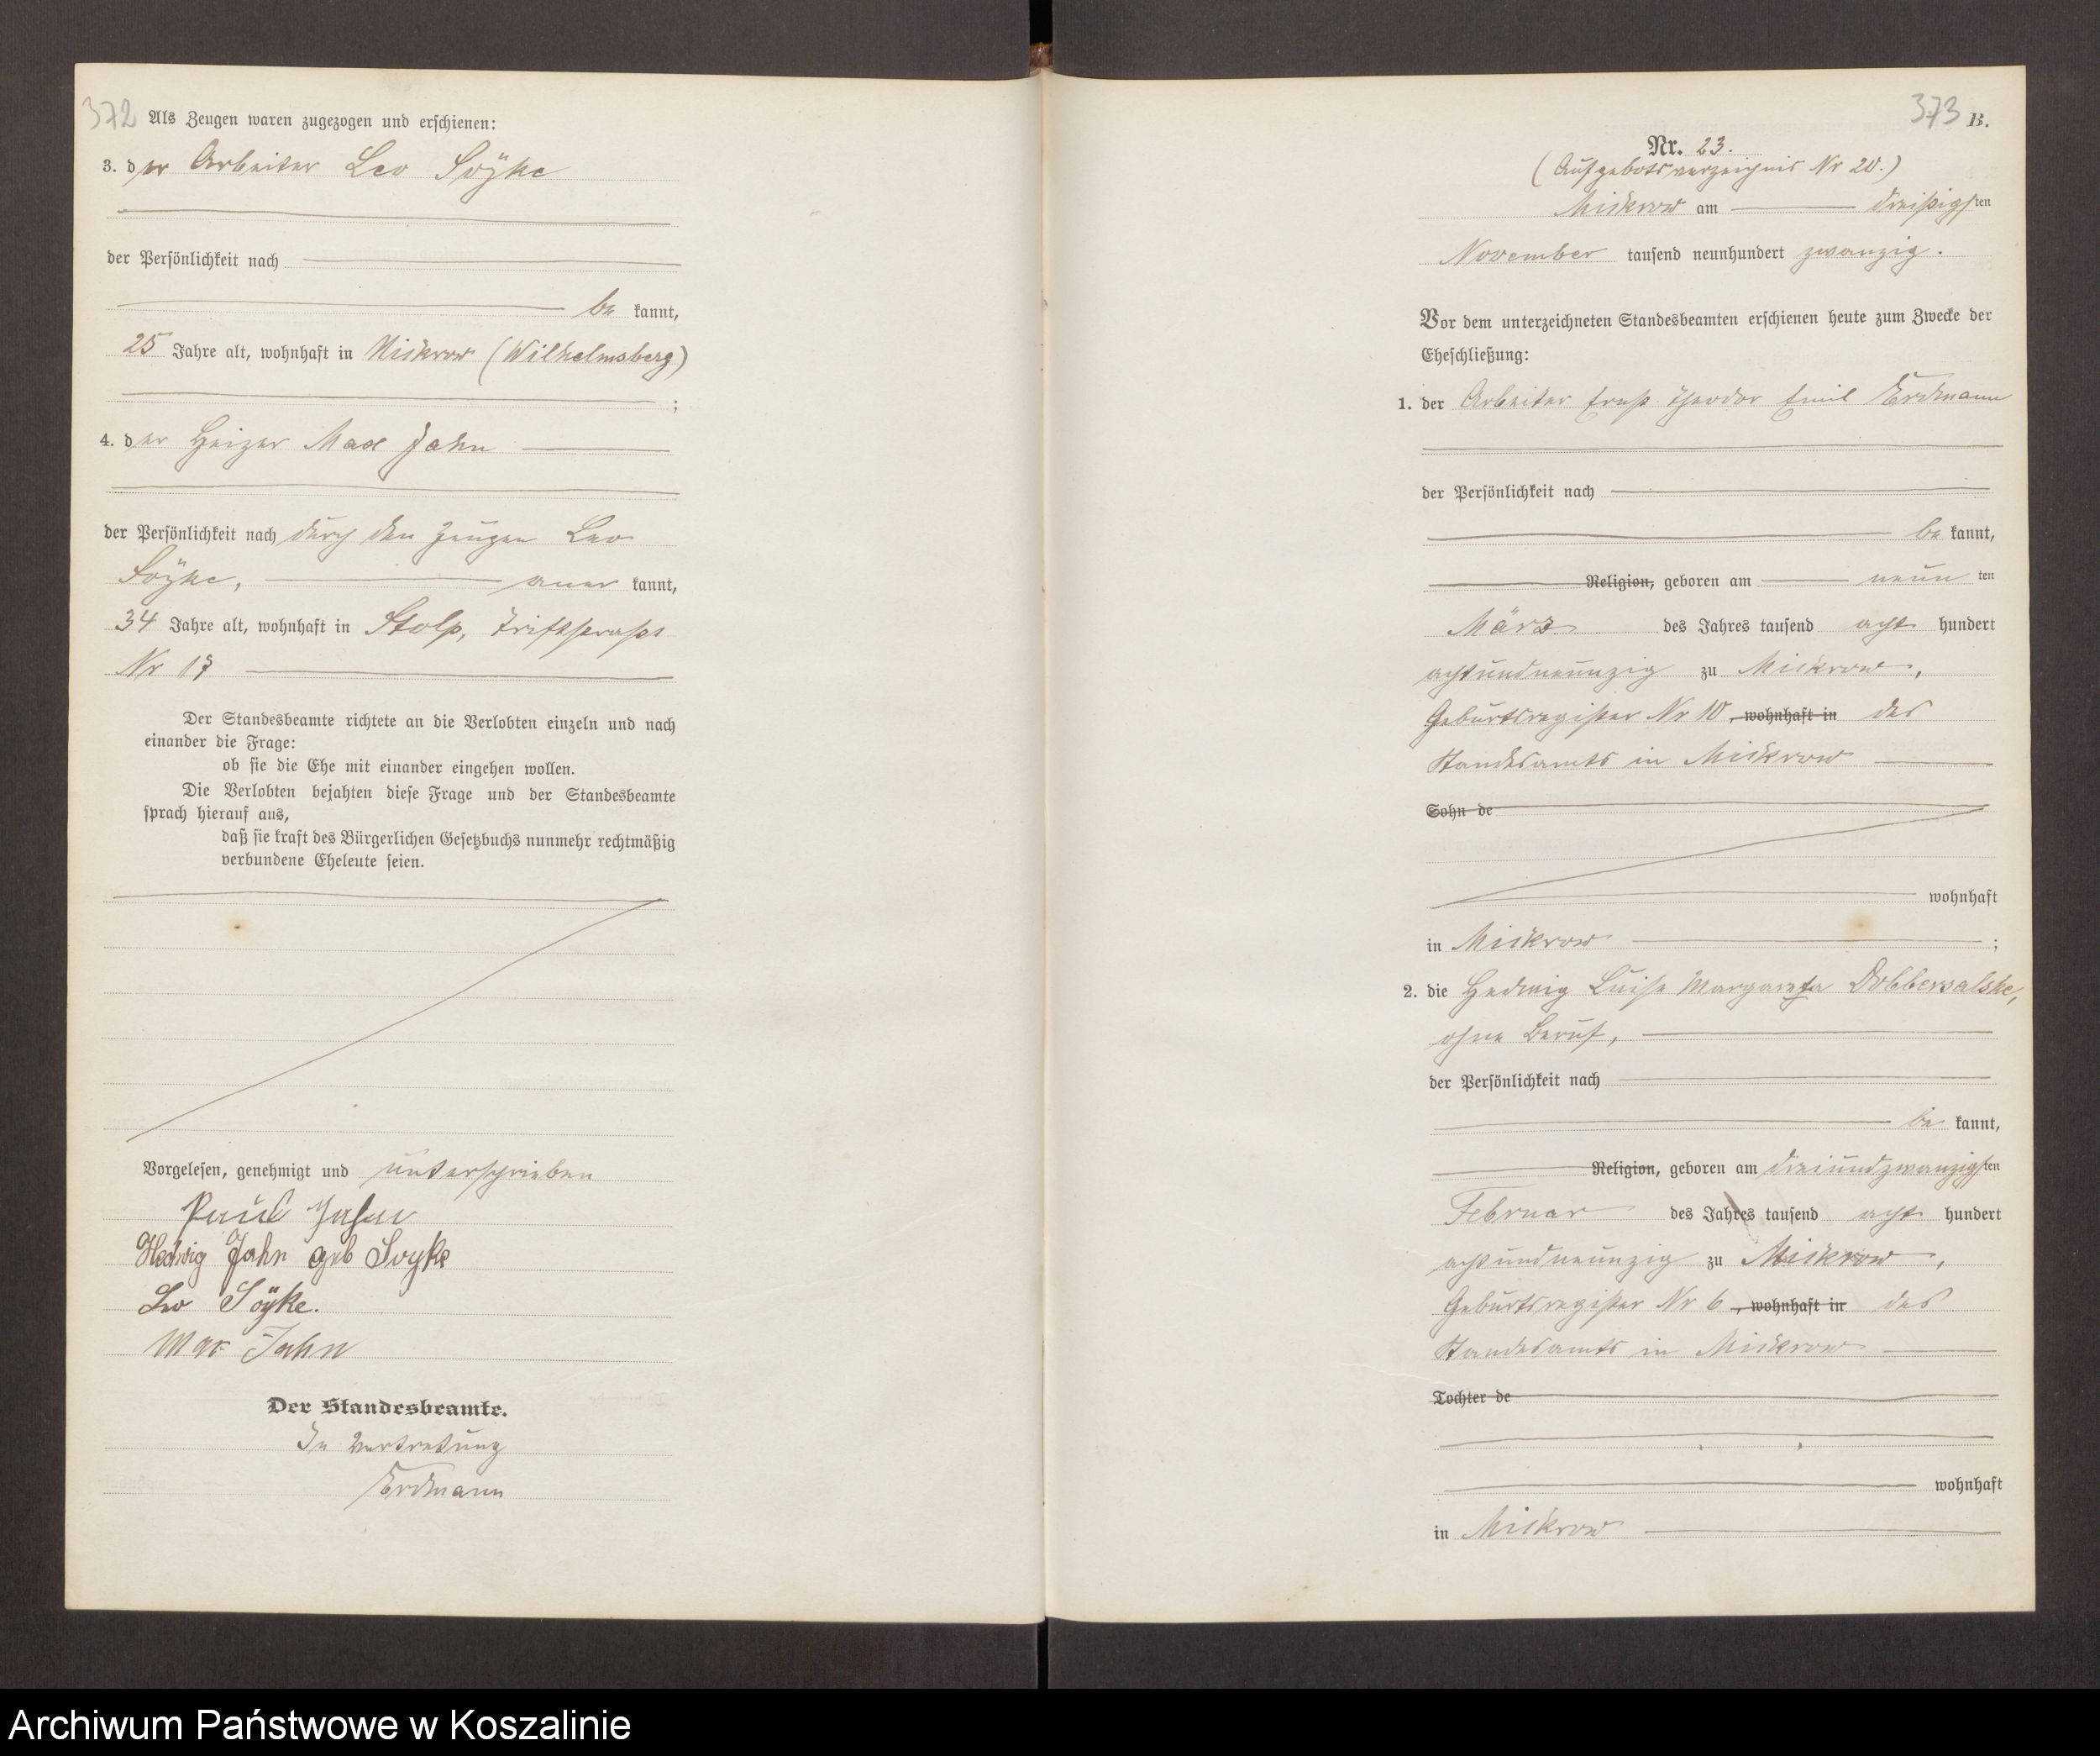 372
Als Zeugen waren zugezogen und erschienen:
3. der Arbeiter Leo Soÿke
der Persönlichkeit nach
be kannt,
25 Jahre alt, wohnhaft in Mickrow (Wilhelmsberg)
;
4. der Heizer Max Jahn
der Persönlichkeit nach durch den Zeugen Leo
Soÿke, aner kannt,
34 Jahre alt, wohnhaft in Stolp, Triftstraße
Nr 17
Der Standesbeamte richtete an die Verlobten einzeln und nach
einander die Frage:
ob sie die Ehe mit einander eingehen wollen.
Die Verlobten bejahten diese Frage und der Standesbeamte
sprach hierauf aus,
daß sie kraft des Bürgerlichen Gesetzbuchs nunmehr rechtmäßig
verbundene Eheleute seien.
Vorgelesen, genehmigt und unterschrieben
Paul Jahn
Hedwig Jahn geb Soyke
Leo Soÿke.
Max Jahn
Der Standesbeamte.
In Vertretung
Erdmann
373 B.
Nr. 23.
(Aufgebotsverzeichnis Nr 20.)
Mickrow am dreißigsten
November tausend neunhundert zwanzig.
Vor dem unterzeichneten Standesbeamten erschienen heute zum Zwecke der
Eheschließung:
1. der Arbeiter Ernst Theodor Emil Erdmann
der Persönlichkeit nach
be kannt,
Religion, geboren am neun ten
März des Jahres tausend acht hundert
achtundneunzig zu Mickrow,
Geburtsregister Nr 10, wohnhaft in des
Standesamts in Mickrow
Sohn de
wohnhaft
in Mickrow ;
2. die Hedwig Luise Margareta Dobbersalske,
ohne Beruf,
der Persönlichkeit nach
be kannt,
Religion, geboren am dreiundzwanzigsten
Februar des Jahres tausend acht hundert
achtundneunzig zu Mickrow,
Geburtsregister Nr 6, wohnhaft in des
Standesamts in Mickrow
Tochter de
wohnhaft
in Mickrow
Archiwum Państwowe w Koszalinie